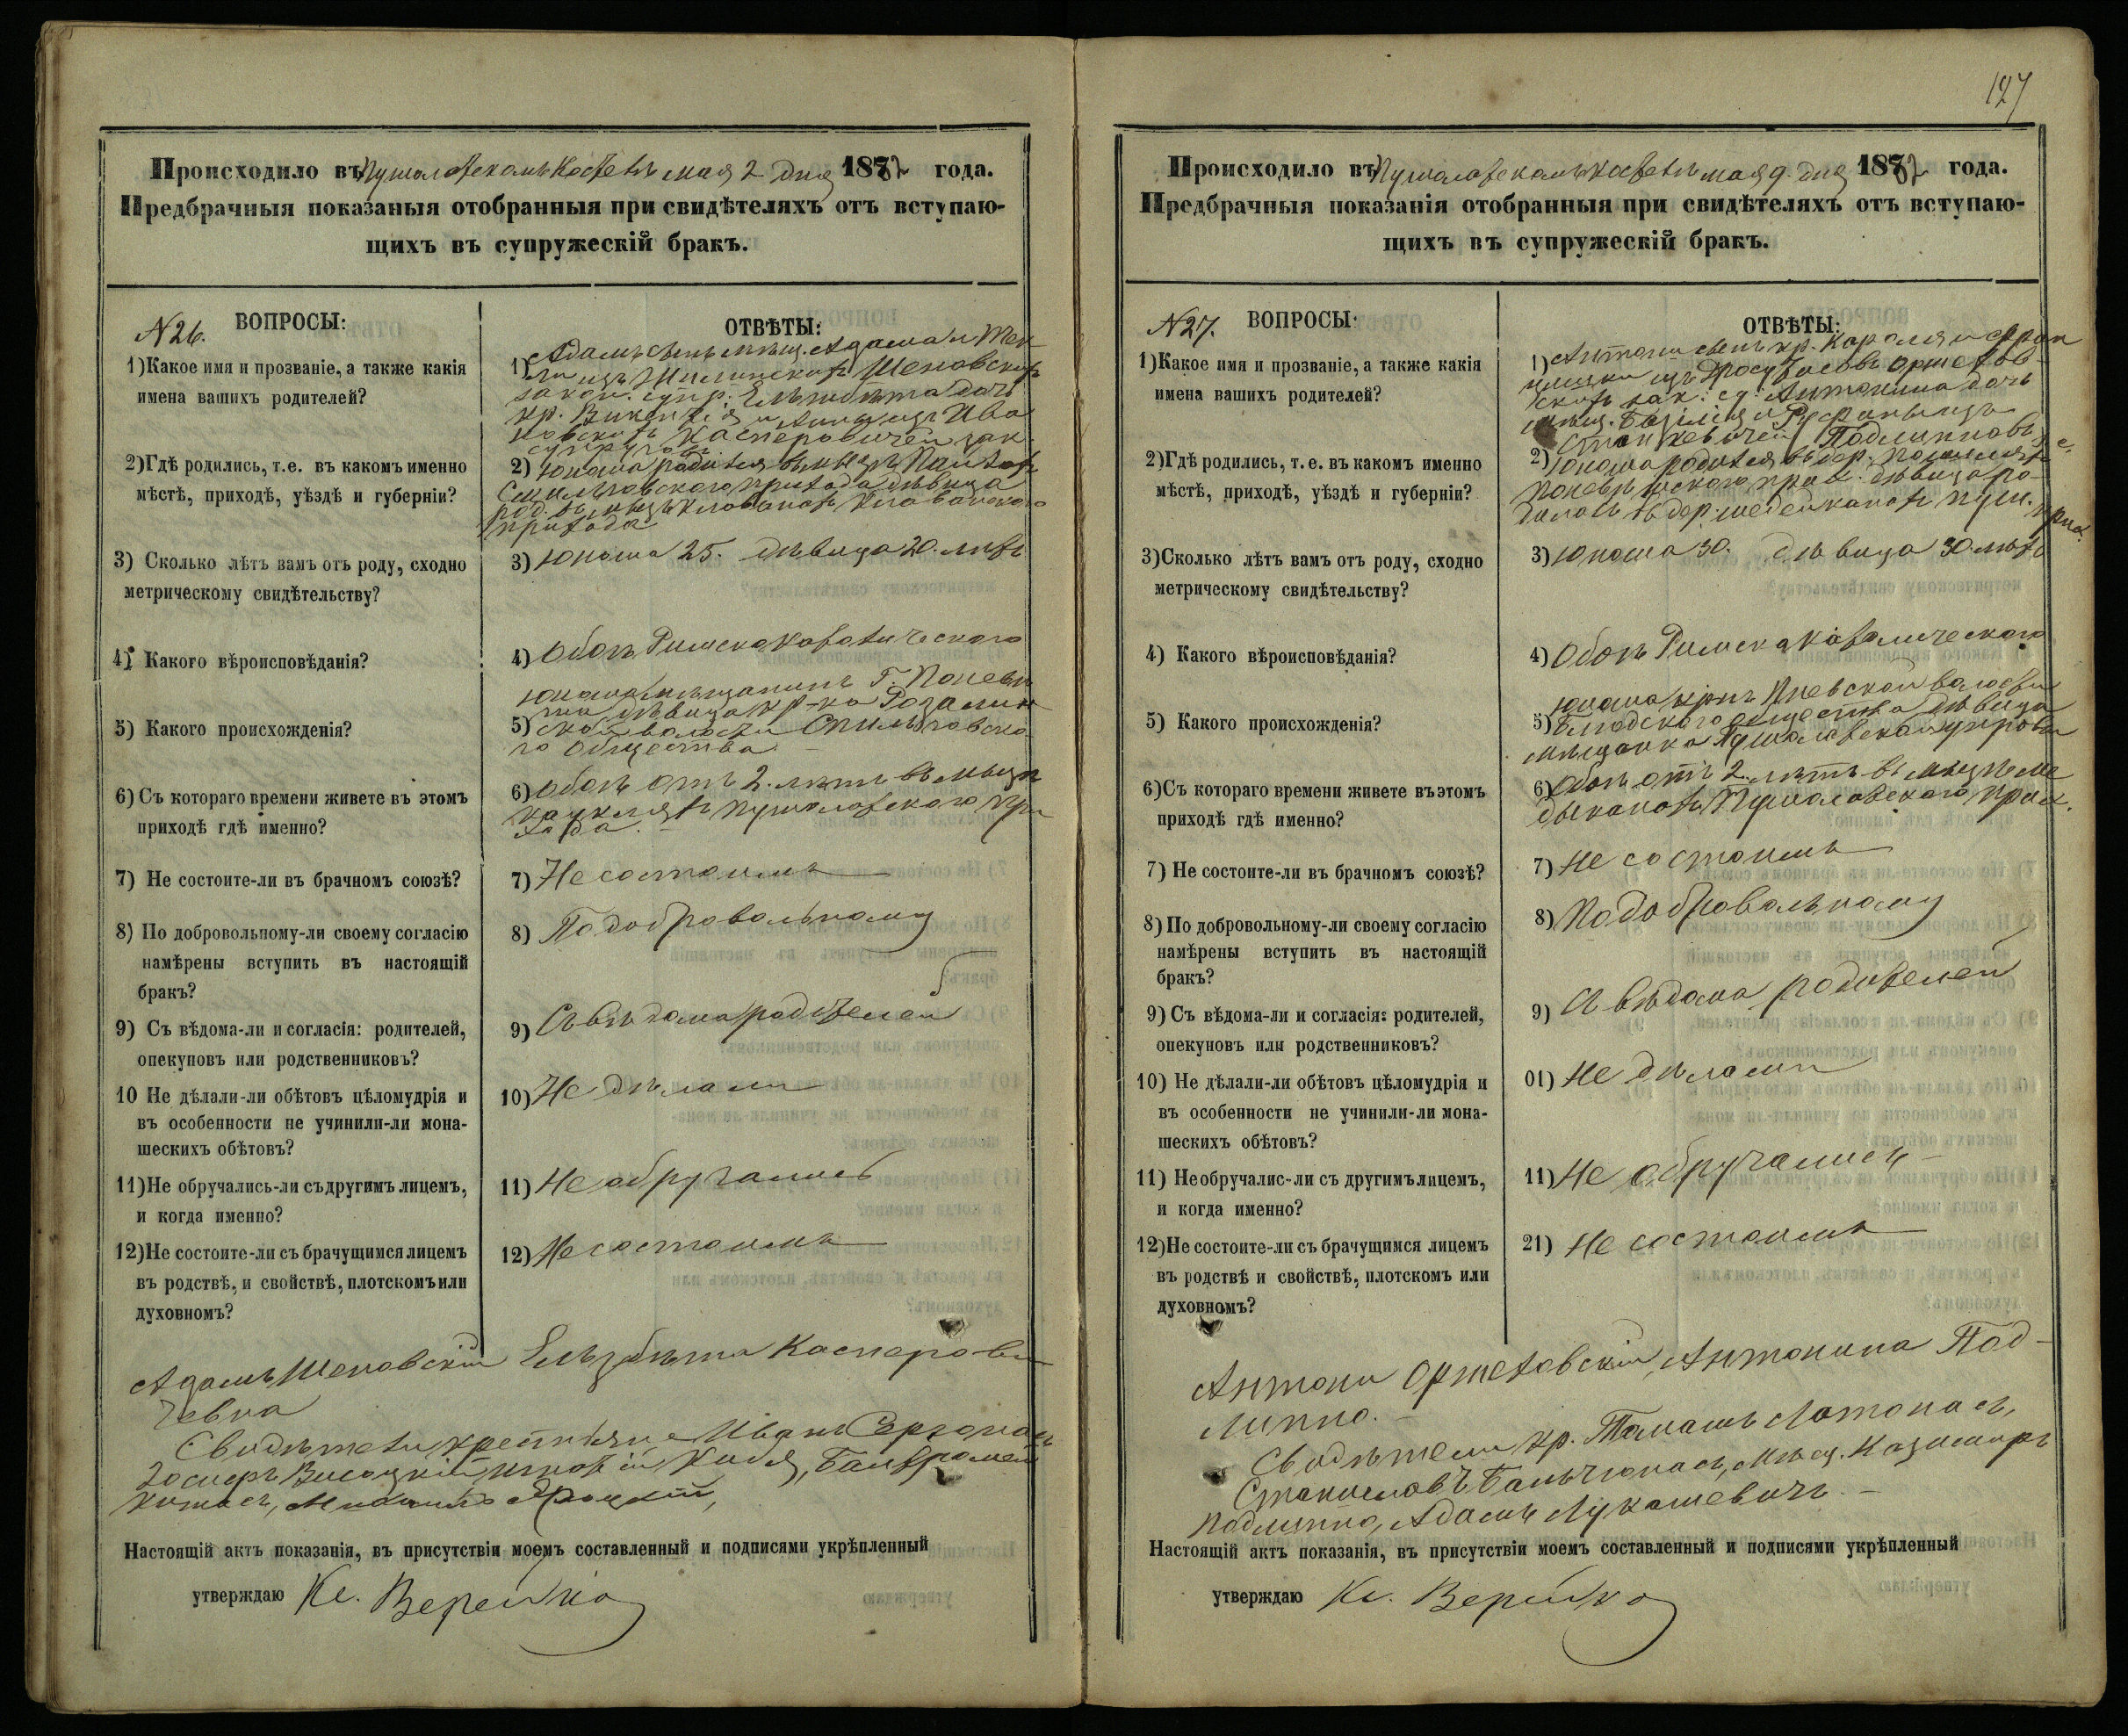 Происходило въ Пушолотскомъ Костелѣ мая 2 дня 1882 года.
Предбрачныя показаныя отобранныя при свидѣтеляхъ отъ вступаю-
щихъ въ супружескій бракъ.
N 26. ВОПРОСЫ:
1) Какое имя и прозваніе, а также какія
имена вашихъ родителей?
2) Гдѣ родились, т. е. въ какомъ именно
мѣстѣ, приходѣ, уѣздѣ и губерніи?
3) Сколько лѣтъ вамъ отъ роду, сходно
метрическому свидѣтельству?
4) Какого вѣроисповѣданія?
5) Какого происхожденія?
6) Съ котораго времени живете въ этомъ
приходѣ гдѣ именно?
7) Не состоите-ли въ брачномъ союзѣ?
8) По добровольному-ли своему согласію
намѣрены вступить въ настоящій
бракъ?
9) Съ вѣдома-ли и согласія: родителей,
опекуновъ или родственниковъ?
10 Не дѣлали-ли обѣтовъ цѣломудрія и
въ особенности не учинили-ли мона-
шескихъ обѣтовъ?
11) Не обручались-ли съ другимъ лицемъ,
и когда именно?
12) Не состоите-ли съ брачущимся лицемъ
въ родствѣ, и свойствѣ, плотскомъ или
духовномъ?
ОТВѢТЫ:
1) Адамъ сынъ мѣщ. Адама и Тек
ли изъ Шеповскихъ
закон. супр. Ельжбѣта дочь
кр. Викентія и Анны изъ Ива
новскихъ Касперовичей зак.
супруговъ
2) Юноша родился въ мыз.
Смильговского прихода дѣвица
род. въ
прихода
3) Юноша 25. дѣвица 20. лѣтъ
4) Обоя Римскокатолического
Юноша мѣщанинъ Г. Понев
жа дѣвица кр-ка Розалин
5) ской волости Смильговско
го общества.
6) Обоя отъ 2. лѣтъ въ мызѣ
Пушолотского при
хода.
7) Не состоимъ
8) По добровольному
9) Съ вѣдома родителей
10) Не дѣлали
11) Не обручались
12) Не состоимъ
Адамъ Шеповскій Ельзбѣта Касперови
чевна
Свидѣтели крестьяне Иванъ
Настоящій актъ показанія, въ присутствіи моемъ составленный и подписями укрѣпленный
утверждаю Кс. Верейко
127
Происходило въ Пушолотскомъ костелѣ мая 9. дня 1882 года.
Предбрачныя показанія отобранныя при свидѣтеляхъ отъ вступаю-
щихъ въ супружескій бракъ.
N 27. ВОПРОСЫ:
1) Какое имя и прозваніе, а также какія
имена вашихъ родителей?
2) Гдѣ родились, т. е. въ какомъ именно
мѣстѣ, приходѣ, уѣздѣ и губерніи?
3) Сколько лѣтъ вамъ отъ роду, сходно
метрическому свидѣтельству?
4) Какого вѣроисповѣданія?
5) Какого происхожденія?
6) Съ котораго времени живете въ этомъ
приходѣ гдѣ именно?
7) Не состоите-ли въ брачномъ союзѣ?
8) По добровольному-ли своему согласію
намѣрены вступить въ настоящій
бракъ?
9) Съ вѣдома-ли и согласія: родителей,
опекуновъ или родственниковъ?
10) Не дѣлали-ли обѣтовъ цѣломудрія и
въ особенности не учинили-ли мона-
шескихъ обѣтовъ?
11) Необручалис-ли съ другимъ лицемъ,
и когда именно?
12) Не состоите-ли съ брачущимся лицемъ
въ родствѣ и свойствѣ, плотскомъ или
духовномъ?
ОТВѢТЫ:
1) Антони сынъ кр. Кароля и Фран
цишки изъ Оржехов
скихъ зак. с. Антонина дочь
мѣщ. Базиля и изъ
Станкевичей Подлипновъ
2) Юноша родился въ дер.
Поневѣжского прих. дѣвица ро-
дилась въ дер. Медейканахъ Пуш. прих.
3) Юноша 30. дѣвица 30 лѣтъ
4) Обоя Римскокатолического
Юноша крнъ волости
5) общества дѣвица
мѣщанка Пушолотской управы
6) Обоя отъ 2. лѣтъ въ
Пушолотского прих.
7) Не состоимъ
8) По добровольному
9) Съ вѣдома родителей
01) Не дѣлали
11) Не обручались
21) Не состоимъ
Антони Оржеховскій, Антонина Под-
липно.
Свидѣтели кр. Томашъ
Станиславъ Бальчюнасъ, мѣщ. Казимиръ
Подлипно, Адамъ Лукашевичъ.
Настоящій актъ показанія, въ присутствіи моемъ составленный и подписями укрѣпленный
утверждаю Кс. Верейко